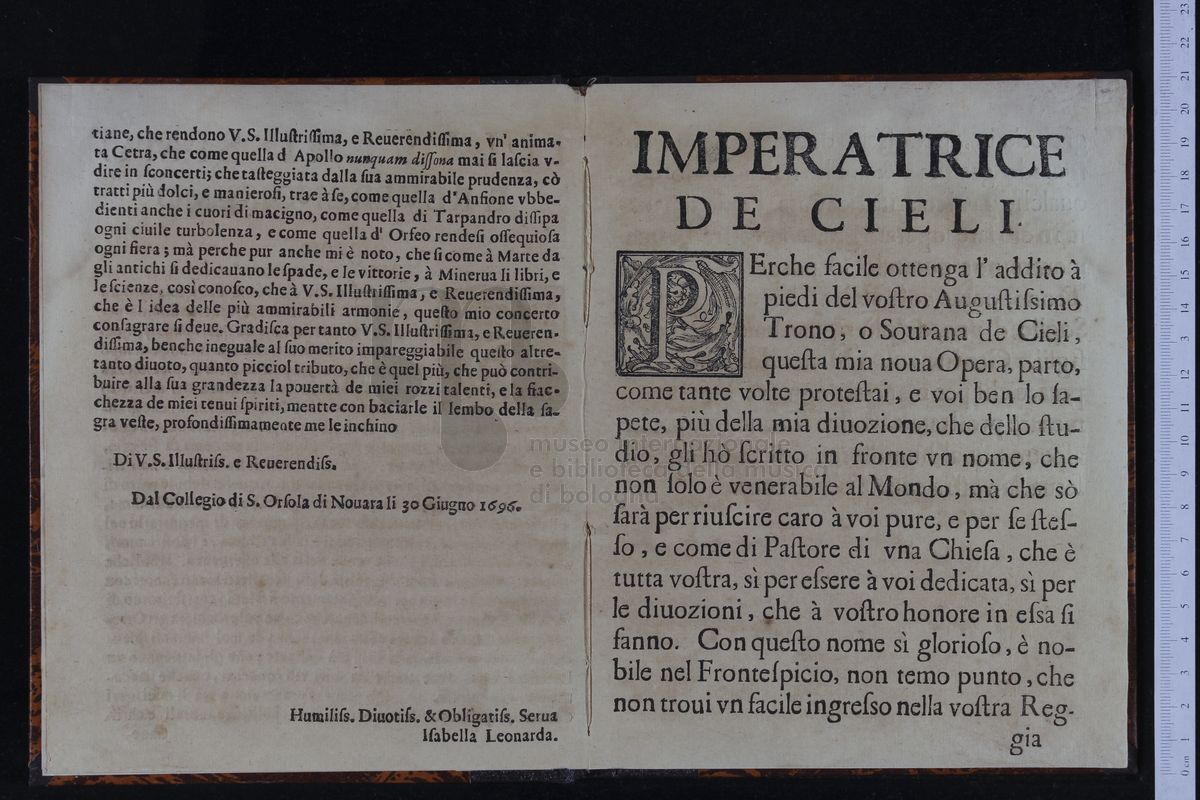 tiane, che rendono V.S. Illuſtriſſima, e Reuerendiſſima, vn' anima-
ta Cetra, che come quella d Apollo nunquam diſſona mai ſi laſcia v-
dire in ſconcerti; che taſteggiata dalla ſua ammirabile prudenza, cõ
tratti più dolci, e manieroſi, trae à ſe, come quella d'Anfione vbbe-
dienti anche i cuori di macigno, come quella di Tarpandro diſſipa
ogni ciuile turbolenza, e come quella d' Orfeo rendeſi oſſequioſa
ogni fiera; mà perche pur anche mi è noto, che ſi come à Marte da
gli antichi ſi dedicauano le ſpade, e le vittorie, à Minerua li libri, e
le ſcienze, così conoſco, che à V.S. Illuſtriſſima, e Reuerendiſſima,
che è l idea delle più ammirabili armonie, queſto mio concerto
conſagrare ſi deue. Gradiſca per tanto V.S. Illuſtriſſima, e Reueren-
diſſima, benche ineguale al ſuo merito impareggiabile queſto altre-
tanto diuoto, quanto picciol tributo, che è quel più, che può contri-
buire alla ſua grandezza la pouertà de miei rozzi talenti, e la fiac-
chezza de miei tenui ſpiriti, mentte con baciarle il lembo della ſa-
gra veſte, profondiſſimamente me le inchino
Di V.S. Illuſtriſs. e Reuerendiſs.
Dal Collegio di S. Orſola di Nouara li 30 Giugno 1696.
Humiliſs. Diuotiſs. & Obligatiſs. Serua
Iſabella Leonarda.
IMPERATRICE
DE CIELI.
PErche facile ottenga l' addito à
piedi del voſtro Auguſtiſsimo
Trono, o Sourana de Cieli,
queſta mia noua Opera, parto,
come tante volte proteſtai, e voi ben lo ſa-
pete, più della mia diuozione, che dello ſtu-
dio, gli hò ſcritto in fronte vn nome, che
non ſolo è venerabile al Mondo, mà che sò
ſarà per riuſcire caro à voi pure, e per ſe ſteſ-
ſo, e come di Paſtore di vna Chieſa, che è
tutta voſtra, sì per eſsere à voi dedicata, sì per
le diuozioni, che à voſtro honore in eſsa ſi
fanno. Con queſto nome sì glorioſo, è no-
bile nel Fronteſpicio, non temo punto, che
non troui vn facile ingreſso nella voſtra Reg-
gia
museo internazionale
e biblioteca della musica
di bologna